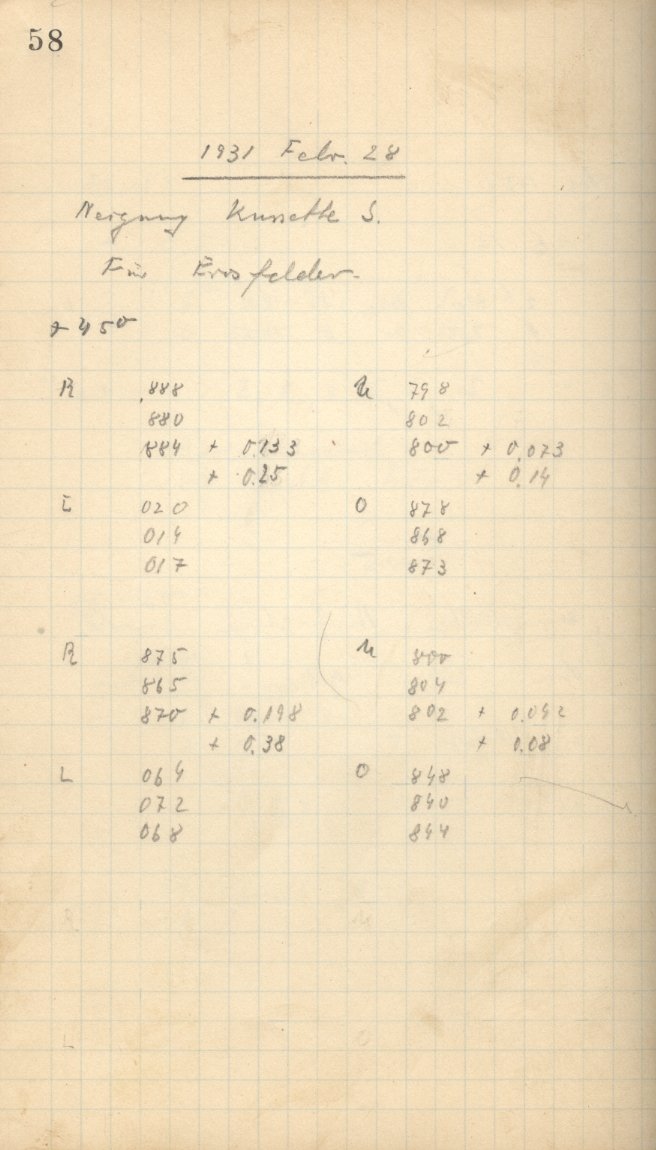 58
1931 Febr. 28
Neigung Kassette S.
Für Erosfelder.
+450
R .888 U 798
880 802
884 + 0.133 800 + 0.073
+ 0.25 + 0.14
L 020 O 878
014 868
017 873
R 875 U 800
865 804
870 + 0.198 802 + 0.042
+ 0.38 + 0.08
L 064 O 848
072 840
068 844
R U
L O